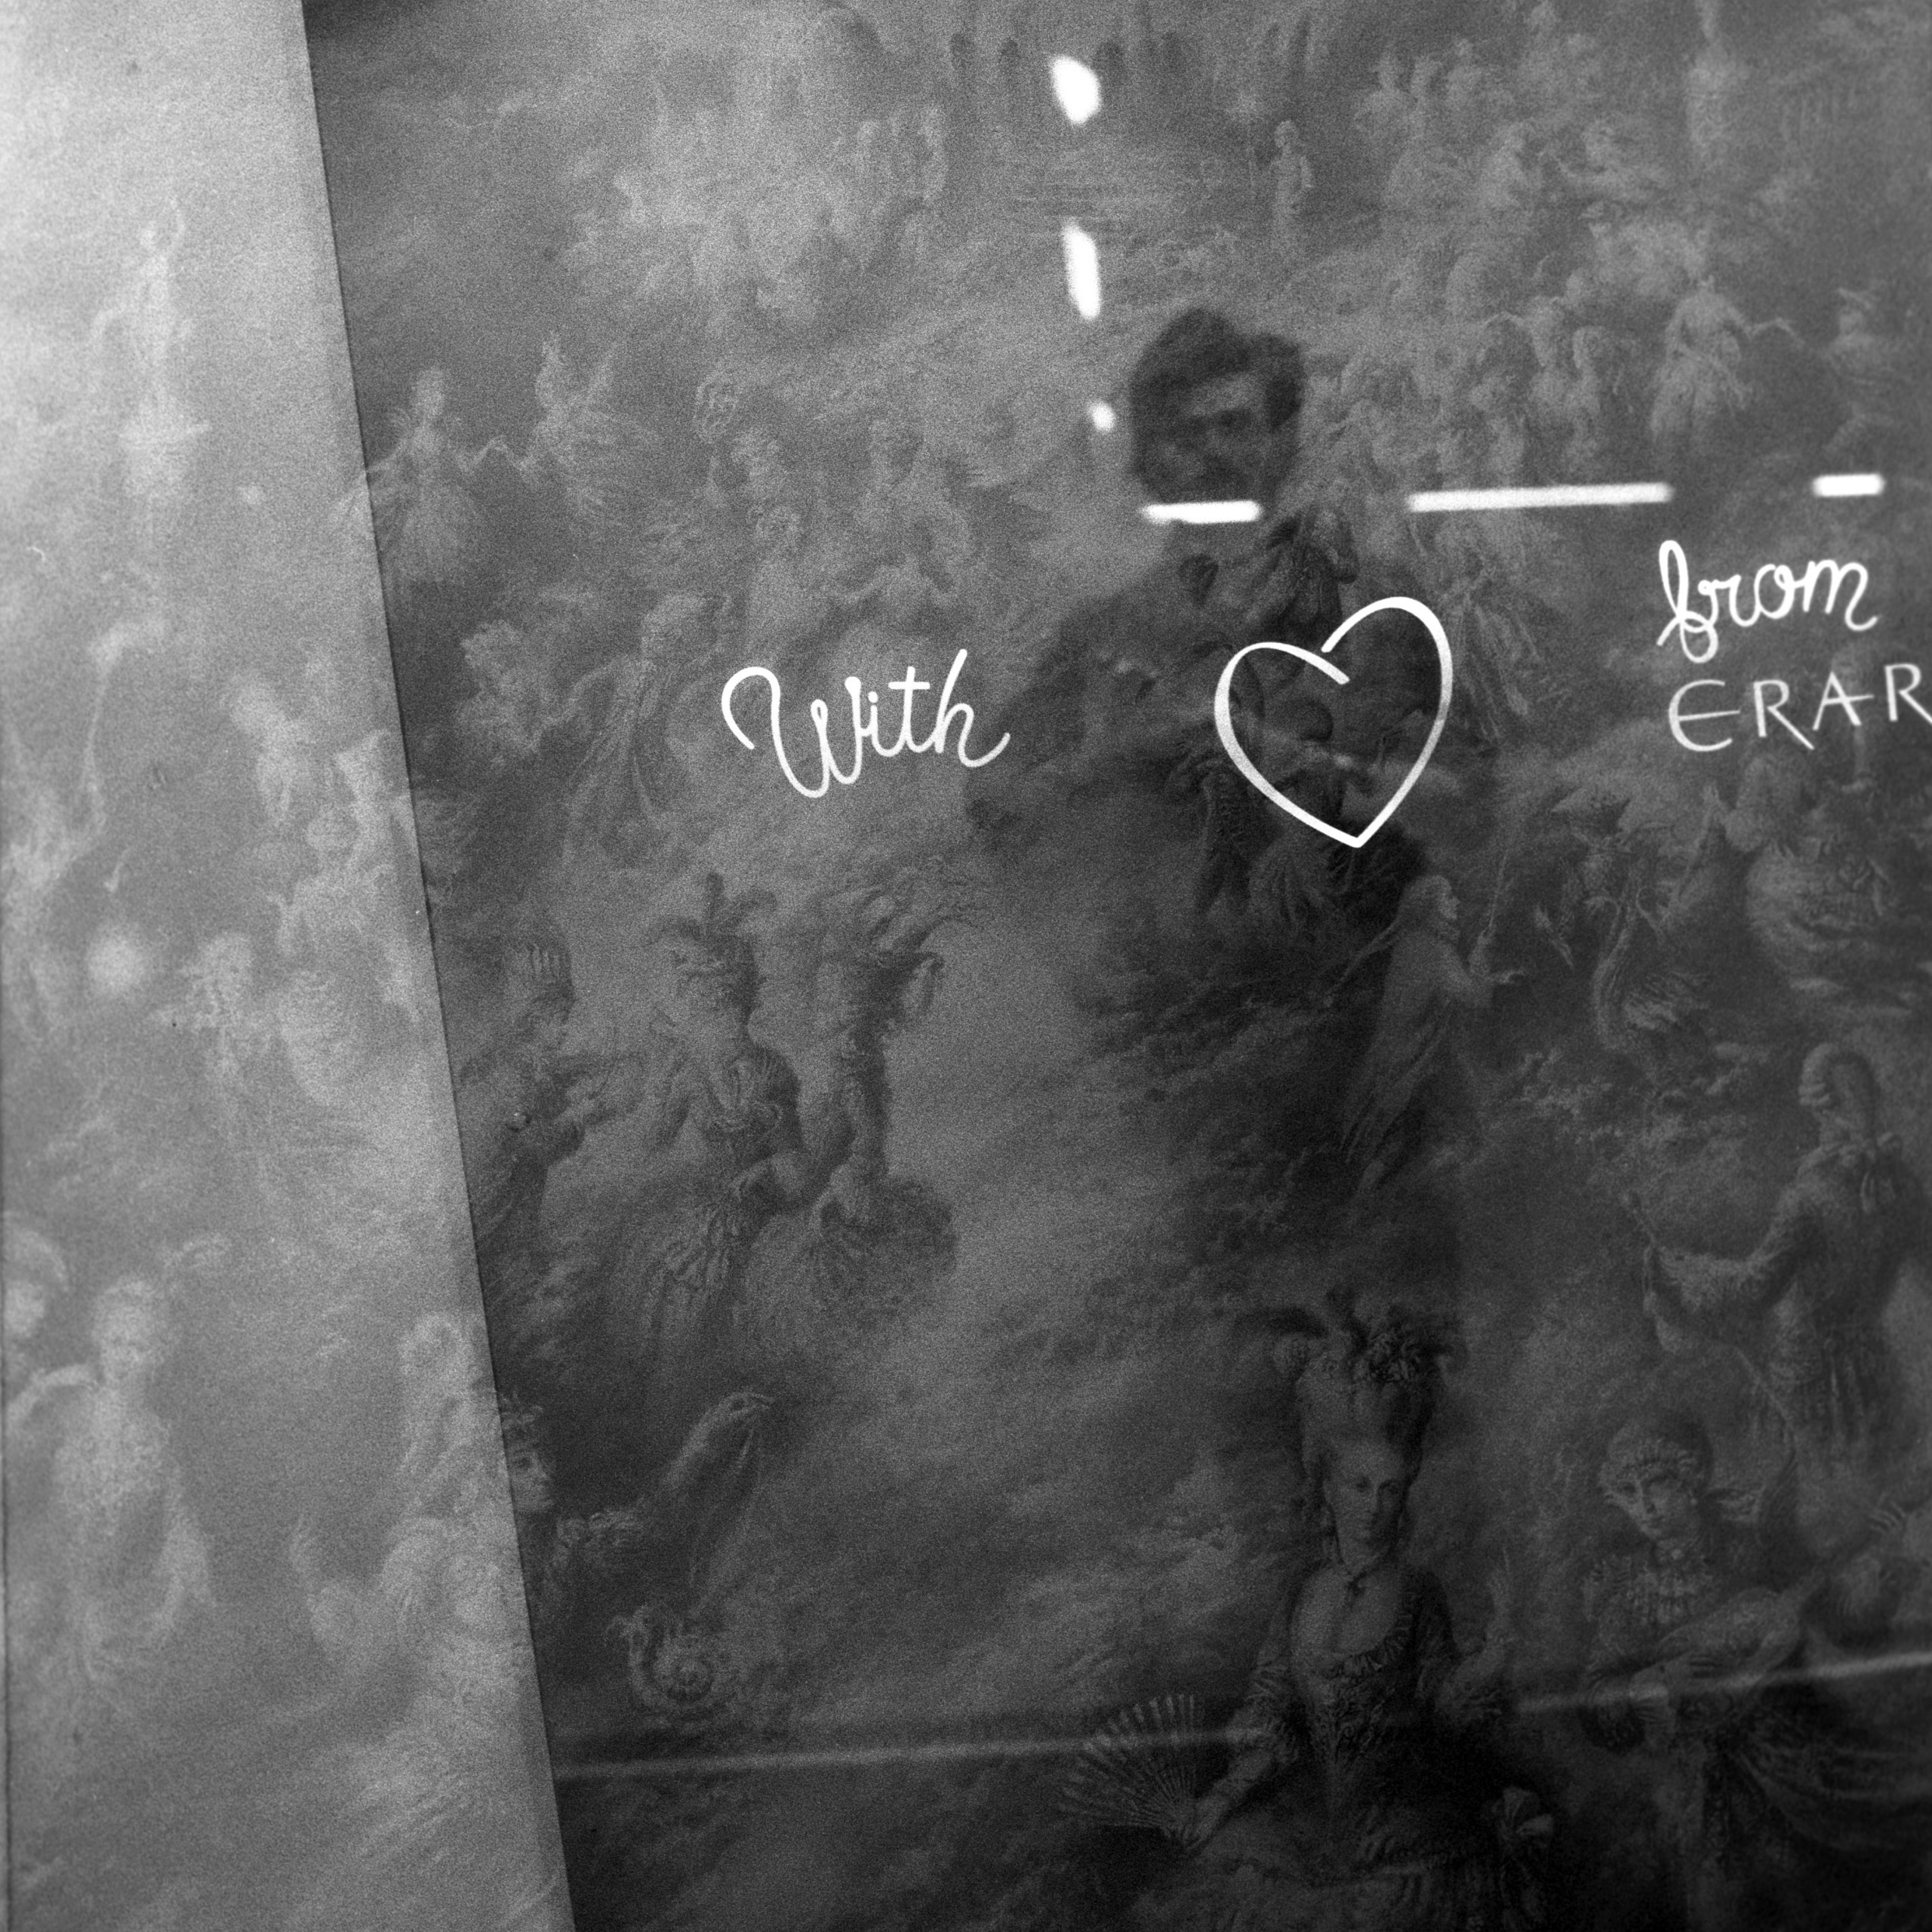 With ♡ from
ERAR